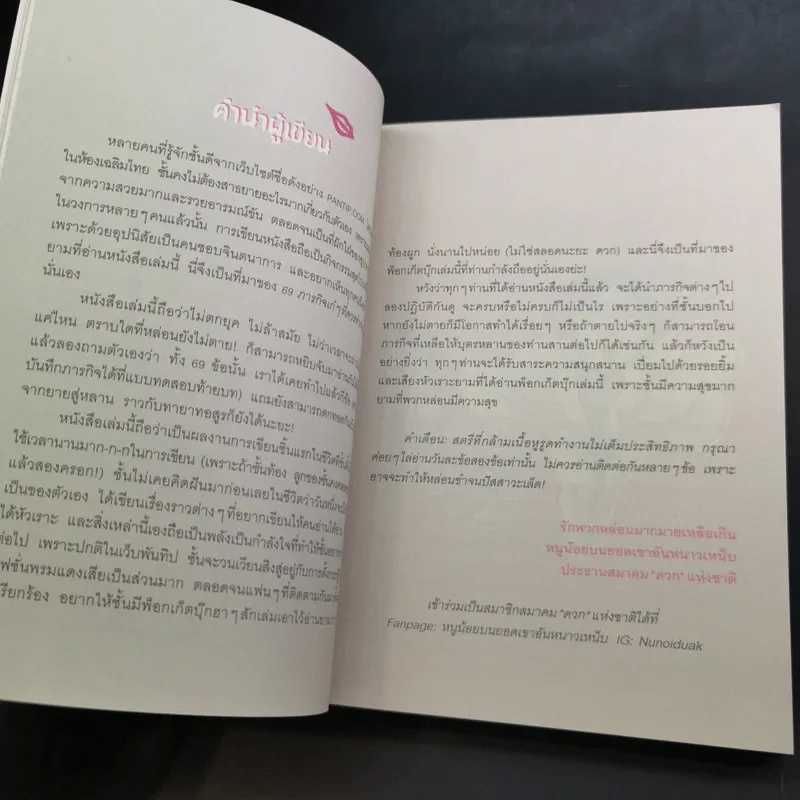 คำนำผู้เขียน
หลายคนที่รู้จักชั้นดีจากเว็บไซต์ชื่อดังอย่าง PANTIP.COM
ในห้องเฉลิมไทย ชั้นคงไม่ต้องสาธยายอะไรมากเกี่ยวกับตัวเอง
จากความสวยมากและรวยอารมณ์ขัน ตลอดจนเป็นที่
ในวงการหลายๆคนแล้วนั้น การเขียนหนังสือถือเป็นกิจกรรม
เพราะด้วยอุปนิสัยเป็นคนชอบจินตนาการ และอยากเห็นทุกคน
ยามที่อ่านหนังสือเล่มนี้ นี่จึงเป็นที่มาของ 69 ภารกิจ
นั่นเอง
หนังสือเล่มนี้ถือว่าไม่ตกยุค ไม่ล้าสมัย ไม่ว่าเวลาจะ
แค่ไหน ตราบใดที่หล่อนยังไม่ตาย! ก็สามารถหยิบจับมาอ่าน
แล้วลองถามตัวเองว่า ทั้ง 69 ข้อนั้น เราได้เคยทำไปแล้ว
บันทึกภารกิจได้ที่แบบทดสอบท้ายบท) แถมยังสามารถตกทอด
จากยายสู่หลาน ราวกับทายาทอสูรก็ยังได้นะยะ!
หนังสือเล่มนี้ถือว่าเป็นผลงานการเขียนชิ้นแรกในชีวิต
ใช้เวลานานมาก-ก-กในการเขียน (เพราะถ้าชั้นท้อง ลูกของชั้นคง
แล้วสองครอก!) ชั้นไม่เคยคิดฝันมาก่อนเลยในชีวิตว่าวันหนึ่งจะ
เป็นของตัวเอง ได้เขียนเรื่องราวต่างๆที่อยากเขียนให้คนอ่านได้อ่าน
ได้หัวเราะ และสิ่งเหล่านี้เองถือเป็นพลังเป็นกำลังใจที่ทำให้ชั้นอยาก
ต่อไป เพราะปกติในเว็บพันทิป ชั้นจะวนเวียนสิงสู่อยู่กับการตั้งกระทู้
ฟชั่นพรมแดงเสียเป็นส่วนมาก ตลอดจนแฟนๆที่ติดตามกันมา
รียกร้อง อยากให้ชั้นมีพ็อกเก็ตบุ๊กฮาๆสักเล่มเอาไว้อ่านยาม
ท้องผูก นั่งนานไปหน่อย (ไม่ใช่สลอดนะยะ ดวก) และนี่จึงเป็นที่มาของ
พ็อกเก็ตบุ๊กเล่มนี้ที่ท่านกำลังถืออยู่นั่นเองย่ะ!
หวังว่าทุกๆท่านที่ได้อ่านหนังสือเล่มนี้แล้ว จะได้นำภารกิจต่างๆไป
ลองปฏิบัติกันดู จะครบหรือไม่ครบก็ไม่เป็นไร เพราะอย่างที่ชั้นบอกไป
หากยังไม่ตายก็มีโอกาสทำได้เรื่อยๆ หรือถ้าตายไปจริงๆ ก็สามารถโอน
ภารกิจที่เหลือให้บุตรหลานของท่านสานต่อไปก็ได้เช่นกัน แล้วก็หวังเป็น
อย่างยิ่งว่า ทุกๆท่านจะได้รับสาระความสนุกสนาน เปี่ยมไปด้วยรอยยิ้ม
และเสียงหัวเราะยามที่ได้อ่านพ็อกเก็ตบุ๊กเล่มนี้ เพราะชั้นมีความสุขมาก
ยามที่พวกหล่อนมีความสุข
คำเตือน: สตรีที่กล้ามเนื้อหูรูดทำงานไม่เต็มประสิทธิภาพ กรุณา
ค่อยๆไล่อ่านวันละข้อสองข้อเท่านั้น ไม่ควรอ่านติดต่อกันหลายๆข้อ เพราะ
อาจจะทำให้หล่อนขำจนปัสสาวะเล็ด!
รักพวกหล่อนมากมายเหลือเกิน
หนูน้อยบนยอดเขาอันหนาวเหน็บ
ประธานสมาคม "ดวก" แห่งชาติ
เข้าร่วมเป็นสมาชิกสมาคม "ดวก" แห่งชาติได้ที่
Fanpage: หนูน้อยบนยอดเขาอันหนาวเหน็บ IG: Nunoiduak